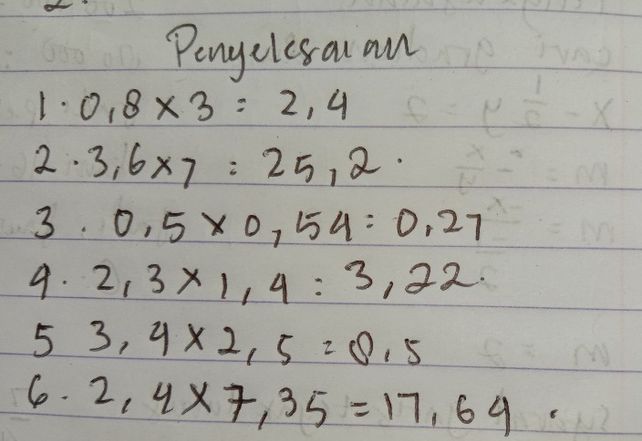 Penyelesaian
1. 0,8 x 3 = 2,4
2. 3,6 x 7 = 25,2.
3. 0,5 x 0,54 = 0,27
4. 2,3 x 1,4 = 3,22.
5 3,4 x 2,5 = 8,5
6. 2,4 x 7,35 = 17,64.